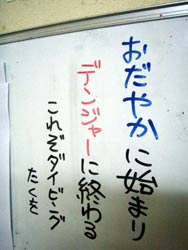 おだやかに始まり
デンジャーに終わる
これぞダイビング
たくを